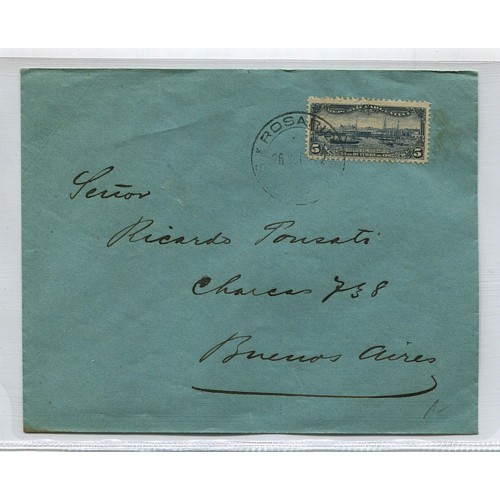 ROSARIO
26
5 5
Señor
Ricardo Ponsati
Charcas 738
Buenos Aires